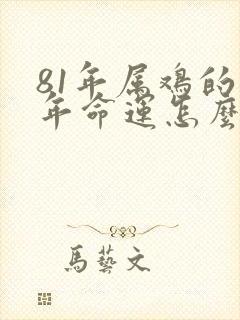 81年属鸡的
年命運怎麽
馬藝文